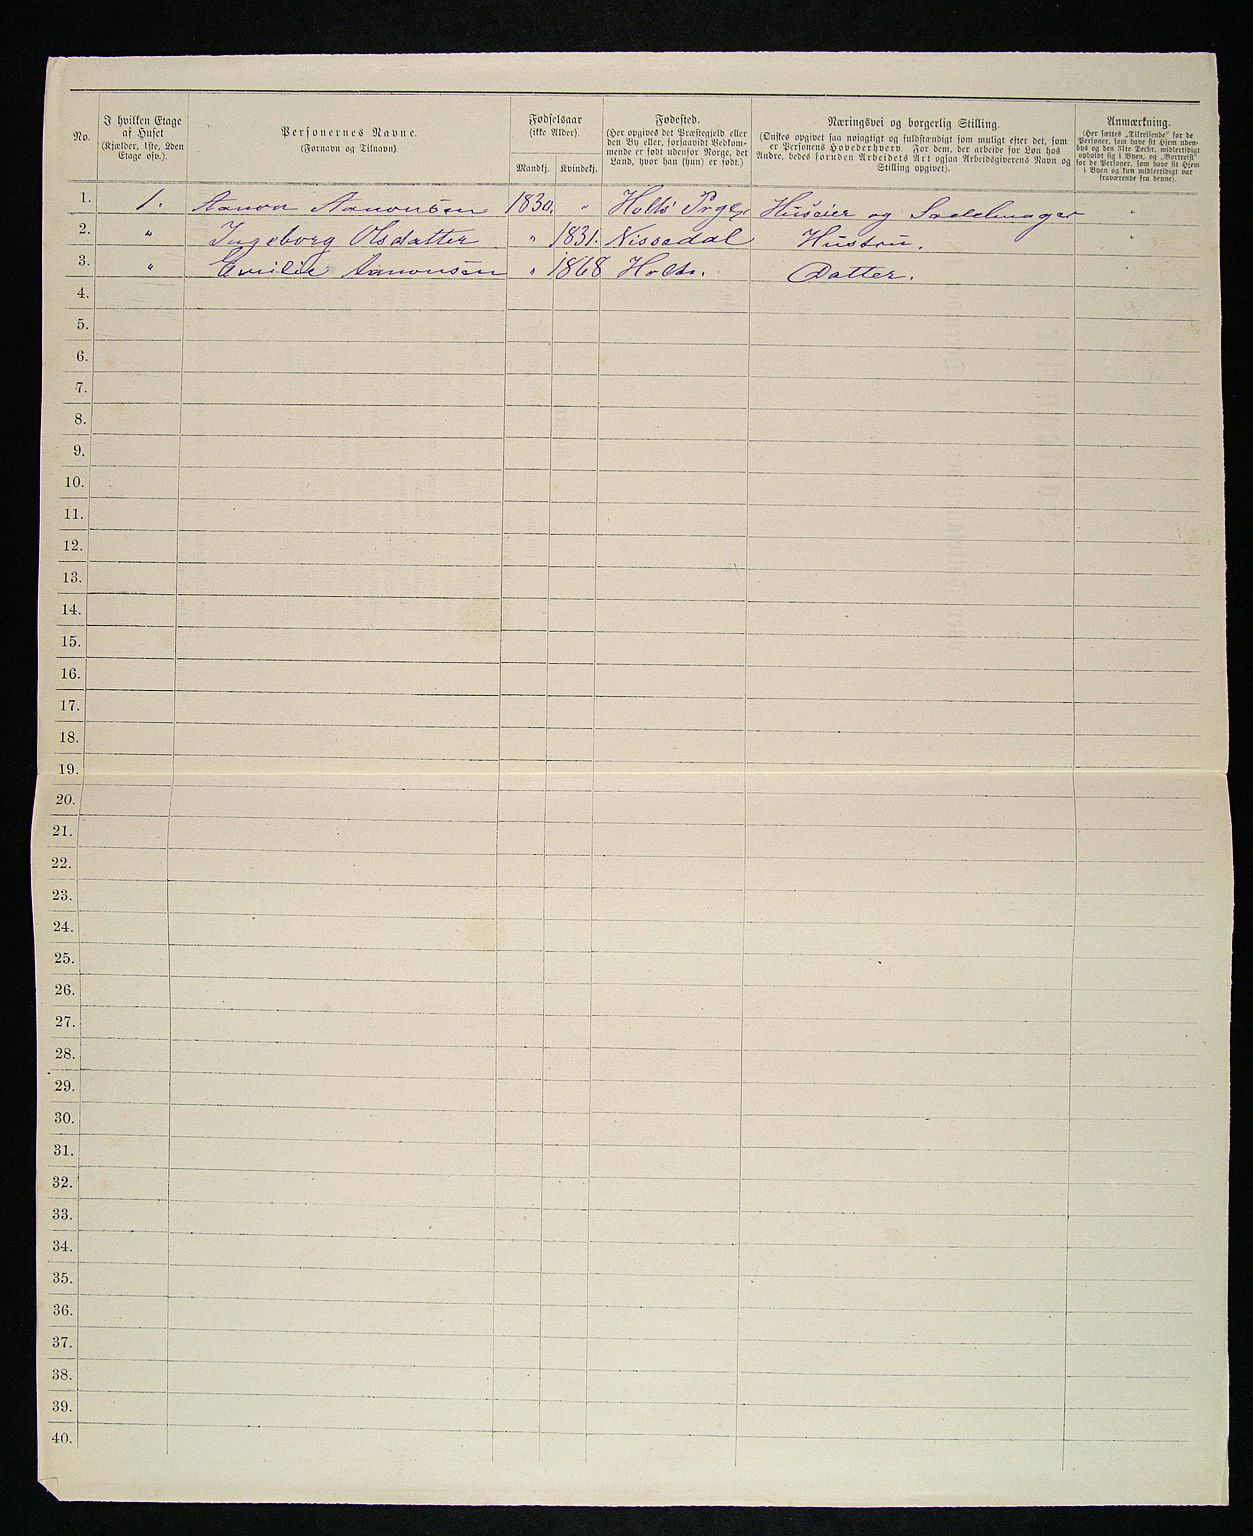 No.
I hvilken Etage
af Huset
(Kjælder, 1ste, 2den
Etage osv.).
Personernes Navne.
(Fornavn og Tilnavn).
Fødselsaar
(ikke Alder).
Mandkj. Kvindekj.
Fødested.
(Her opgives det Præstegjeld eller
den By eller, forsaavidt Vedkom-
mende er født udenfor Norge, det
Land, hvor han (hun) er født.)
Næringsvei og borgerlig Stilling.
(Ønskes opgivet saa nøiagtigt og fuldstændigt som muligt efter det, som
er Personens Hovederhverv. For dem, der arbeide for Løn hos
Andre, bedes foruden Arbeidets Art ogsaa Arbeidsgiverens Navn og
Stilling opgivet).
Anmærkning.
(Her sættes „Tilreisende“ for de
Personer, som have sit Hjem uden-
bys og den 31te Decbr. midlertidigt
opholdt sig i Byen, og „Bortreist“
for de Personer, som have sit Hjem
i Byen og kun midlertidigt var
fraværende fra denne).
1. 1. Aanon Aanonsen 1830. " Holts Prgj. Huseier og Sadelmager "
2. " Ingeborg Olsdatter " 1831. Nissedal Hustru. "
3. " Emilie Aanonsen " 1868 Holts. Datter. "
4.
5.
6.
7.
8.
9.
10.
11.
12.
13.
14.
15.
16.
17.
18.
19.
20.
21.
22.
23.
24.
25.
26.
27.
28.
29.
30.
31.
32.
33.
34.
35.
36.
37.
38.
39.
40.